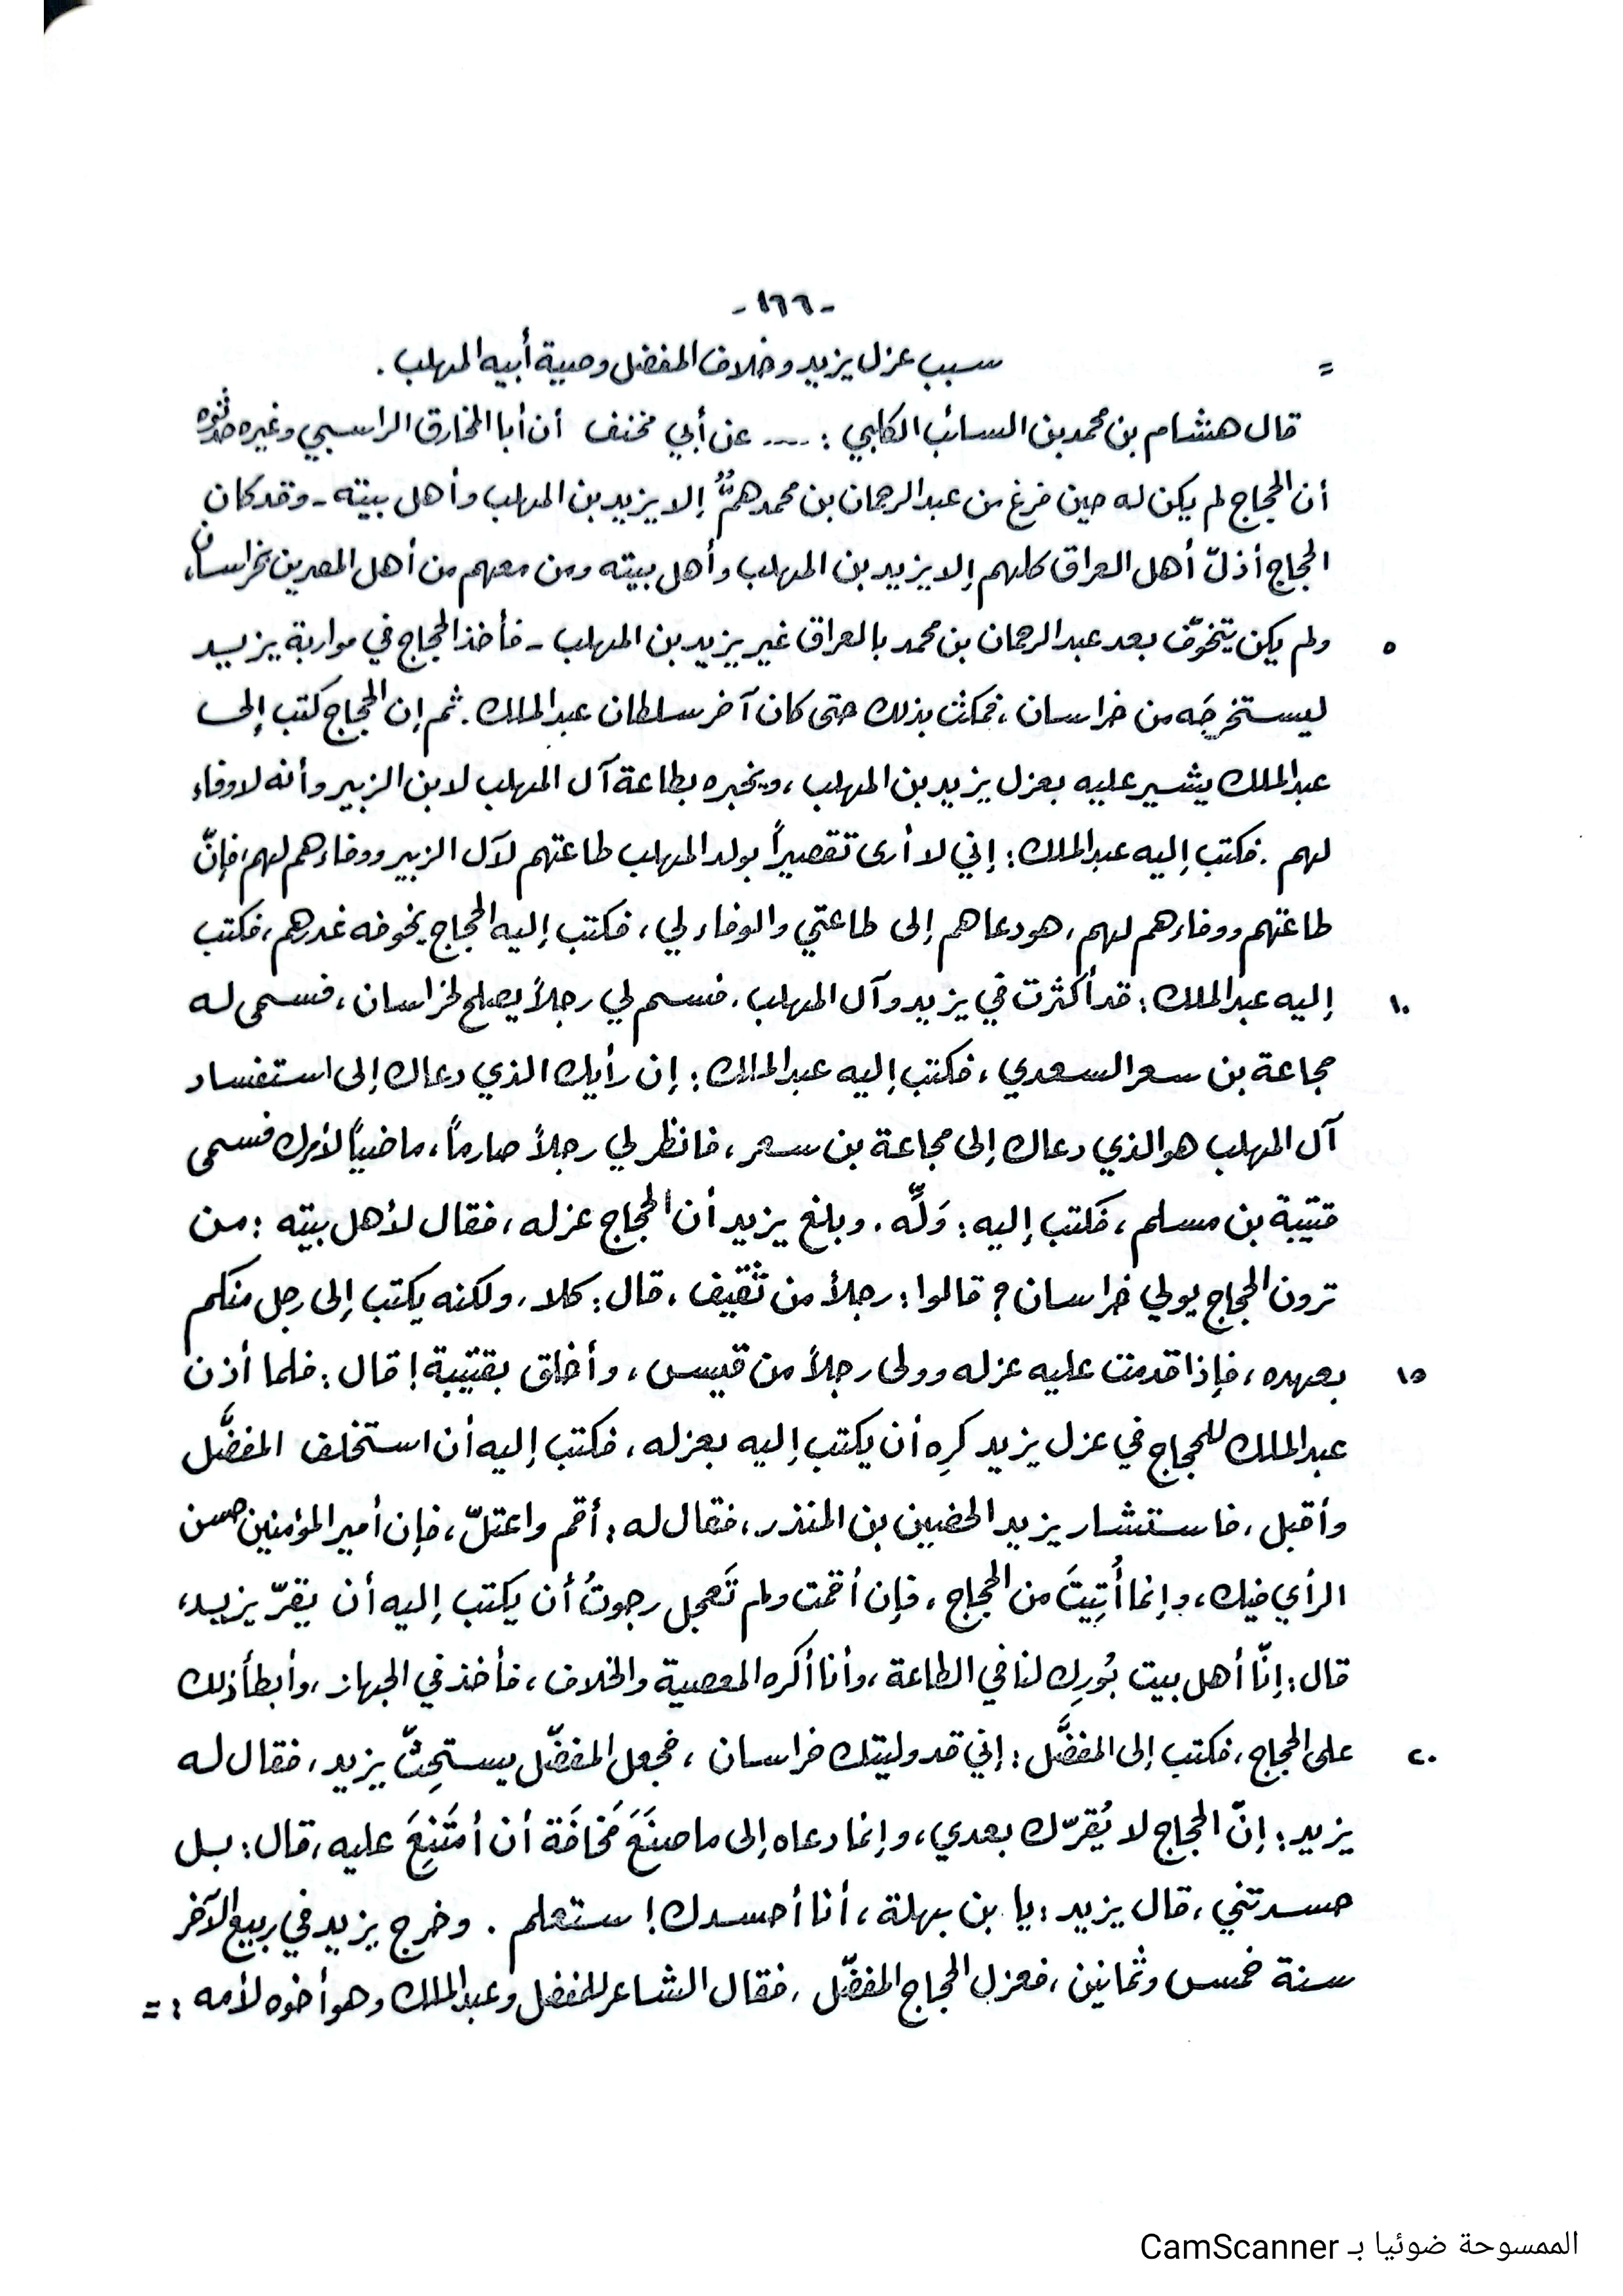 -١٦٦-
= سبب عزل يزيد وخلاف المفضل وصية أبيه المهلب.
قال هشام بن محمد بن السائب الكلبي: .... عن أبي مخنف أن أبا المخارق الراسبي وغيره حدثوه
أن الحجاج لم يكن له حين فرغ من عبد الرحمان بن محمد همٌّ إلا يزيد بن المهلب وأهل بيته - وقد كان
الحجاج أذلّ أهل العراق كلهم إلا يزيد بن المهلب وأهل بيته ومن معهم من أهل المصرين بخراسان،
٥ ولم يكن يتخوّف بعد عبد الرحمان بن محمد بالعراق غير يزيد بن المهلب - فأخذ الحجاج في مواربة يزيد
ليستخرجَه من خراسان، فمكث بذلك حتى كان آخر سلطان عبد الملك. ثم إن الحجاج كتب إلى
عبد الملك يشير عليه بعزل يزيد بن المهلب، ويخبره بطاعة آل المهلب لابن الزبير وأنه لا وفاء
لهم. فكتب إليه عبد الملك: إني لا أرى تقصيراً بولد المهلب طاعتهم لآل الزبير ووفاءهم لهم، فإنّ
طاعتهم ووفاءهم لهم، هو دعاهم إلى طاعتي والوفاء لي، فكتب إليه الحجاج يخوفه غدرهم، فكتب
١٠ إليه عبد الملك: قد أكثرت في يزيد وآل المهلب. فسم لي رجلاً يصلح لخراسان، فسمى له
مجاعة بن سعر السعدي، فكتب إليه عبد الملك: إن رأيك الذي دعاك إلى استفساد
آل المهلب هو الذي دعاك إلى مجاعة بن سعر، فانظر لي رجلاً صارماً، ماضياً لأمرك فسمى
قتيبة بن مسلم، فكتب إليه: وَلِّه. وبلغ يزيد أن الحجاج عزله، فقال لأهل بيته: من
ترون الحجاج يولي خراسان؟ قالوا: رجلاً من ثقيف، قال: كلا، ولكنه يكتب إلى رجل منكم
١٥ بعهده، فإذا قدمت عليه عزله وولى رجلاً من قيس، وأخلق بقتيبة! قال: فلما أذن
عبد الملك للحجاج في عزل يزيد كرِه أن يكتب إليه بعزله، فكتب إليه أن استخلف المفضَّل
وأقبل، فاستشار يزيد الحضين بن المنذر، فقال له: أقم واعتلّ، فإن أمير المؤمنين حسن
الرأي فيك، وإنما أُتِيتَ من الحجاج، فإن أقمت ولم تَعجل رجوتُ أن يكتب إليه أن يقرّ يزيد،
قال: إنّا أهل بيت بُورِك لنا في الطاعة، وأنا أكره المعصية والخلاف، فأخذ في الجهاز، وأبطأ ذلك
٢٠ على الحجاج، فكتب إلى المفضَّل: إني قد وليتك خراسان، فجعل المفضّل يستحِثّ يزيد، فقال له
يزيد: إنّ الحجاج لا يُقرّك بعدي، وإنما دعاه إلى ما صنَعَ مَخافَة أن أمتَنِعَ عليه، قال: بل
حسدتني، قال يزيد: يا بن بهلة، أنا أحسدك! ستعلم. وخرج يزيد في ربيع الآخر
سنة خمس وثمانين، فعزل الحجاج المفضّل، فقال الشاعر للمفضل وعبد الملك وهو أخوه لأمه: =
الممسوحة ضوئيا بـ CamScanner